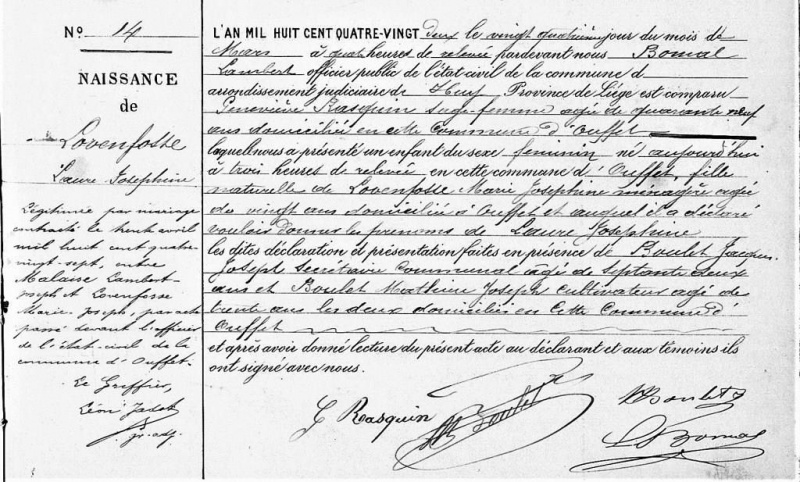 N° 14
NAISSANCE
de
Lovenfosse
Laure Josephine
Légitimée par mariage
contracté le trente avril
mil huit cent quatre-
vingt-sept, entre
Malaise Lambert-
Joseph et Lovenfosse
Marie-Joseph, par acte
passé devant l'officier
de l'état-civil de la
commune d'Ouffet-
Le Greffier,
Léon Jadot
gr. adj.
L'AN MIL HUIT CENT QUATRE-VINGT deux le vingt quatrième jour du mois de
Mars à quatre heures de relevée pardevant nous Bomal
Lambert officier public de l'état civil de la commune d
arrondissement judiciaire de Huy Province de Liége est comparu
Geneviève Rasquin sage-femme agée de quarante neuf
ans domiciliée en cette Commune d'Ouffet
laquelle nous a présenté un enfant du sexe feminin né aujourd'hui
à trois heures de relevée en cette commune d'Ouffet, fille
naturelle de Lovenfosse Marie Josephine ménagère agée
de vingt ans domiciliée à Ouffet et auquel il a déclaré
vouloir donner les prenoms de Laure Josephine
les dites déclaration et présentation faites en présence de Boulet Jacques
Joseph secrétaire Communal agé de septante deux
ans et Boulet Mathieu Joseph cultivateur agé de
trente ans les deux domiciliés en cette Commune d'
Ouffet
et après avoir donné lecture du présent acte au déclarant et aux témoins ils
ont signé avec nous.
G Rasquin
Boulet
Boulet
L Bomal